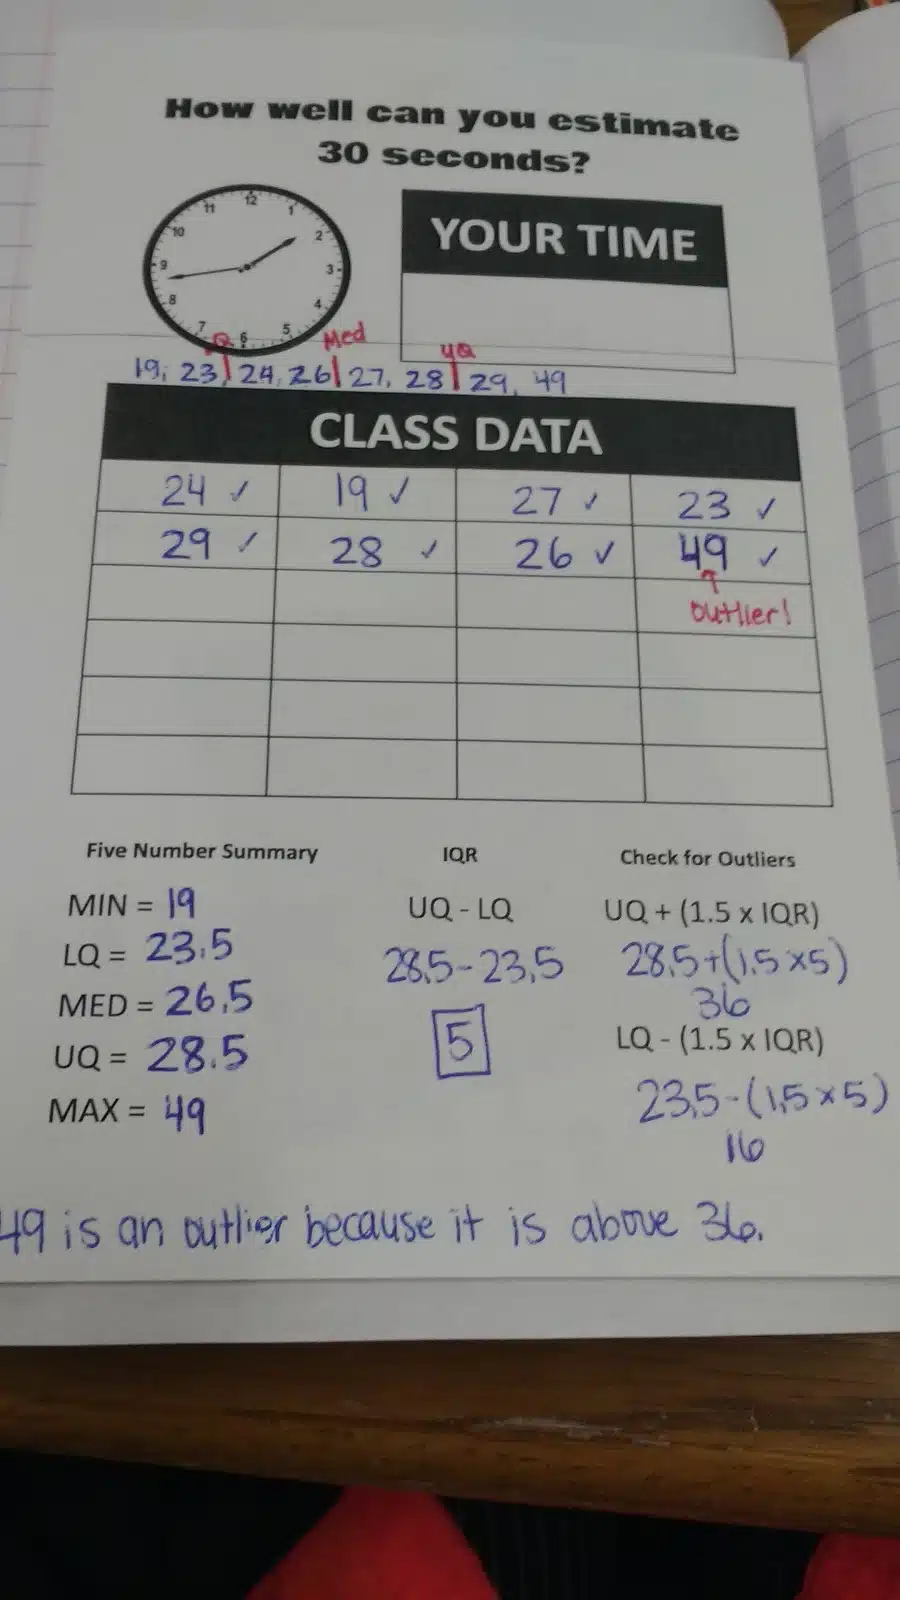 How well can you estimate
30 seconds?
12
11
1
10
2
9
3
8
4
7
6
5
YOUR TIME
LQ Med UQ
19, 23 | 24, 26 | 27, 28 | 29, 49
CLASS DATA
24 ✓ 19 ✓ 27 ✓ 23 ✓
29 ✓ 28 ✓ 26 ✓ 49 ✓
↑
outlier!
Five Number Summary
MIN = 19
LQ = 23.5
MED = 26.5
UQ = 28.5
MAX = 49
IQR
UQ - LQ
28.5-23.5
5
Check for Outliers
UQ + (1.5 x IQR)
28.5+(1.5×5)
36
LQ - (1.5 x IQR)
23.5-(1.5×5)
16
49 is an outlier because it is above 36.